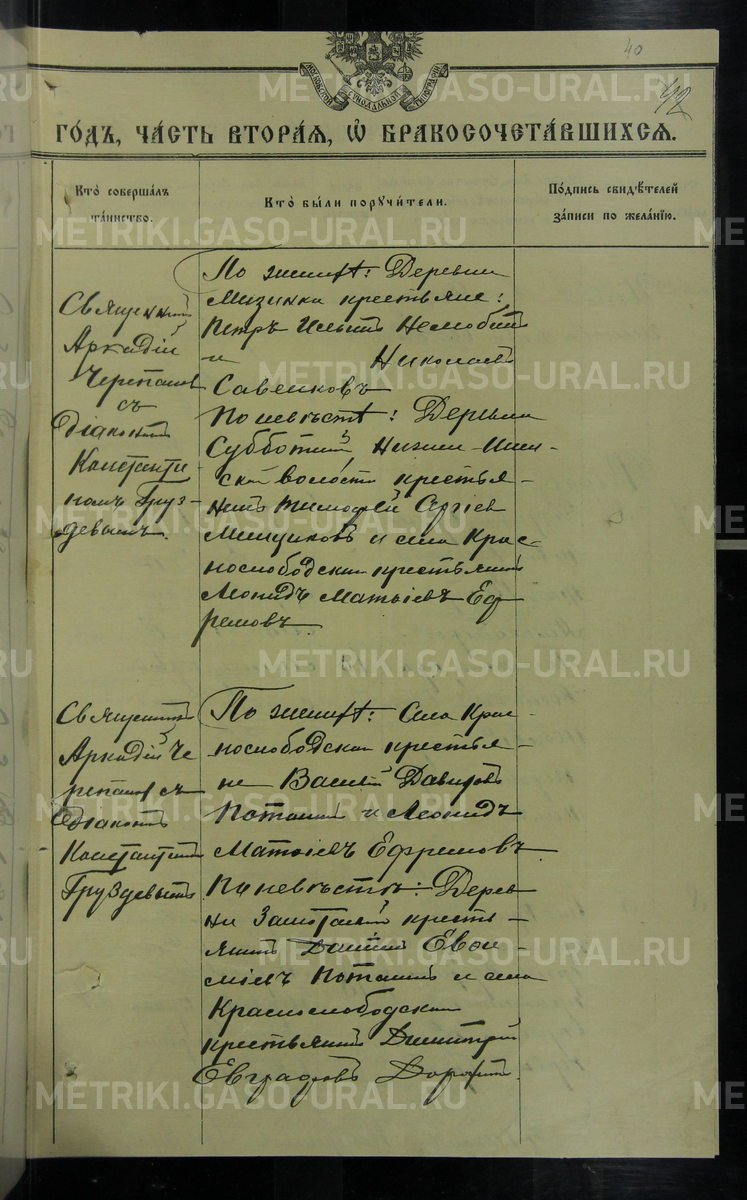 40
42
МОСКОВСКОЙ СѴНОДАЛЬНОЙ ТИПОГРАФІИ
METRIKI.GASO-URAL.RU
го́дъ, ча́сть втора́я, ѡ҆ бракосочета́вшихся.
Кто̀ соверша́лъ
та́инство.
Кто̀ бы́ли порꙋчи́тели.
По́дпись свидѣ́телей
за́писи по жела́нїю.
Священникъ
Аркадій
Черепановъ
съ
діакономъ
Константи-
номъ Груз-
девымъ.
По жениѣ: Деревни
крестьяне:
Петръ Ильинъ
и Николаевъ
Савенковъ
По невѣстѣ: Деревни
Субботиной, Нижне-
ской волости крестья-
нинъ Тимофей Сергіев
Менщиковъ и села Крас-
нослободскаго крестьянинъ
Леонидъ Матвіевъ Еф
ремовъ
Священникъ
Аркадій Че
репановъ съ
діакономъ
Константиномъ
Груздевымъ
По женихѣ: Села Крас-
нослободскаго крестья-
не Василій Давидовъ
Потанинъ и Леонидъ
Матвіевъ Ефремовъ
По невѣстѣ: Дерев
ни кресть-
янинъ Евѳи-
міевъ Потанинъ и села
Краснослободскаго
крестьянинъ Димитрій
Евграфовъ